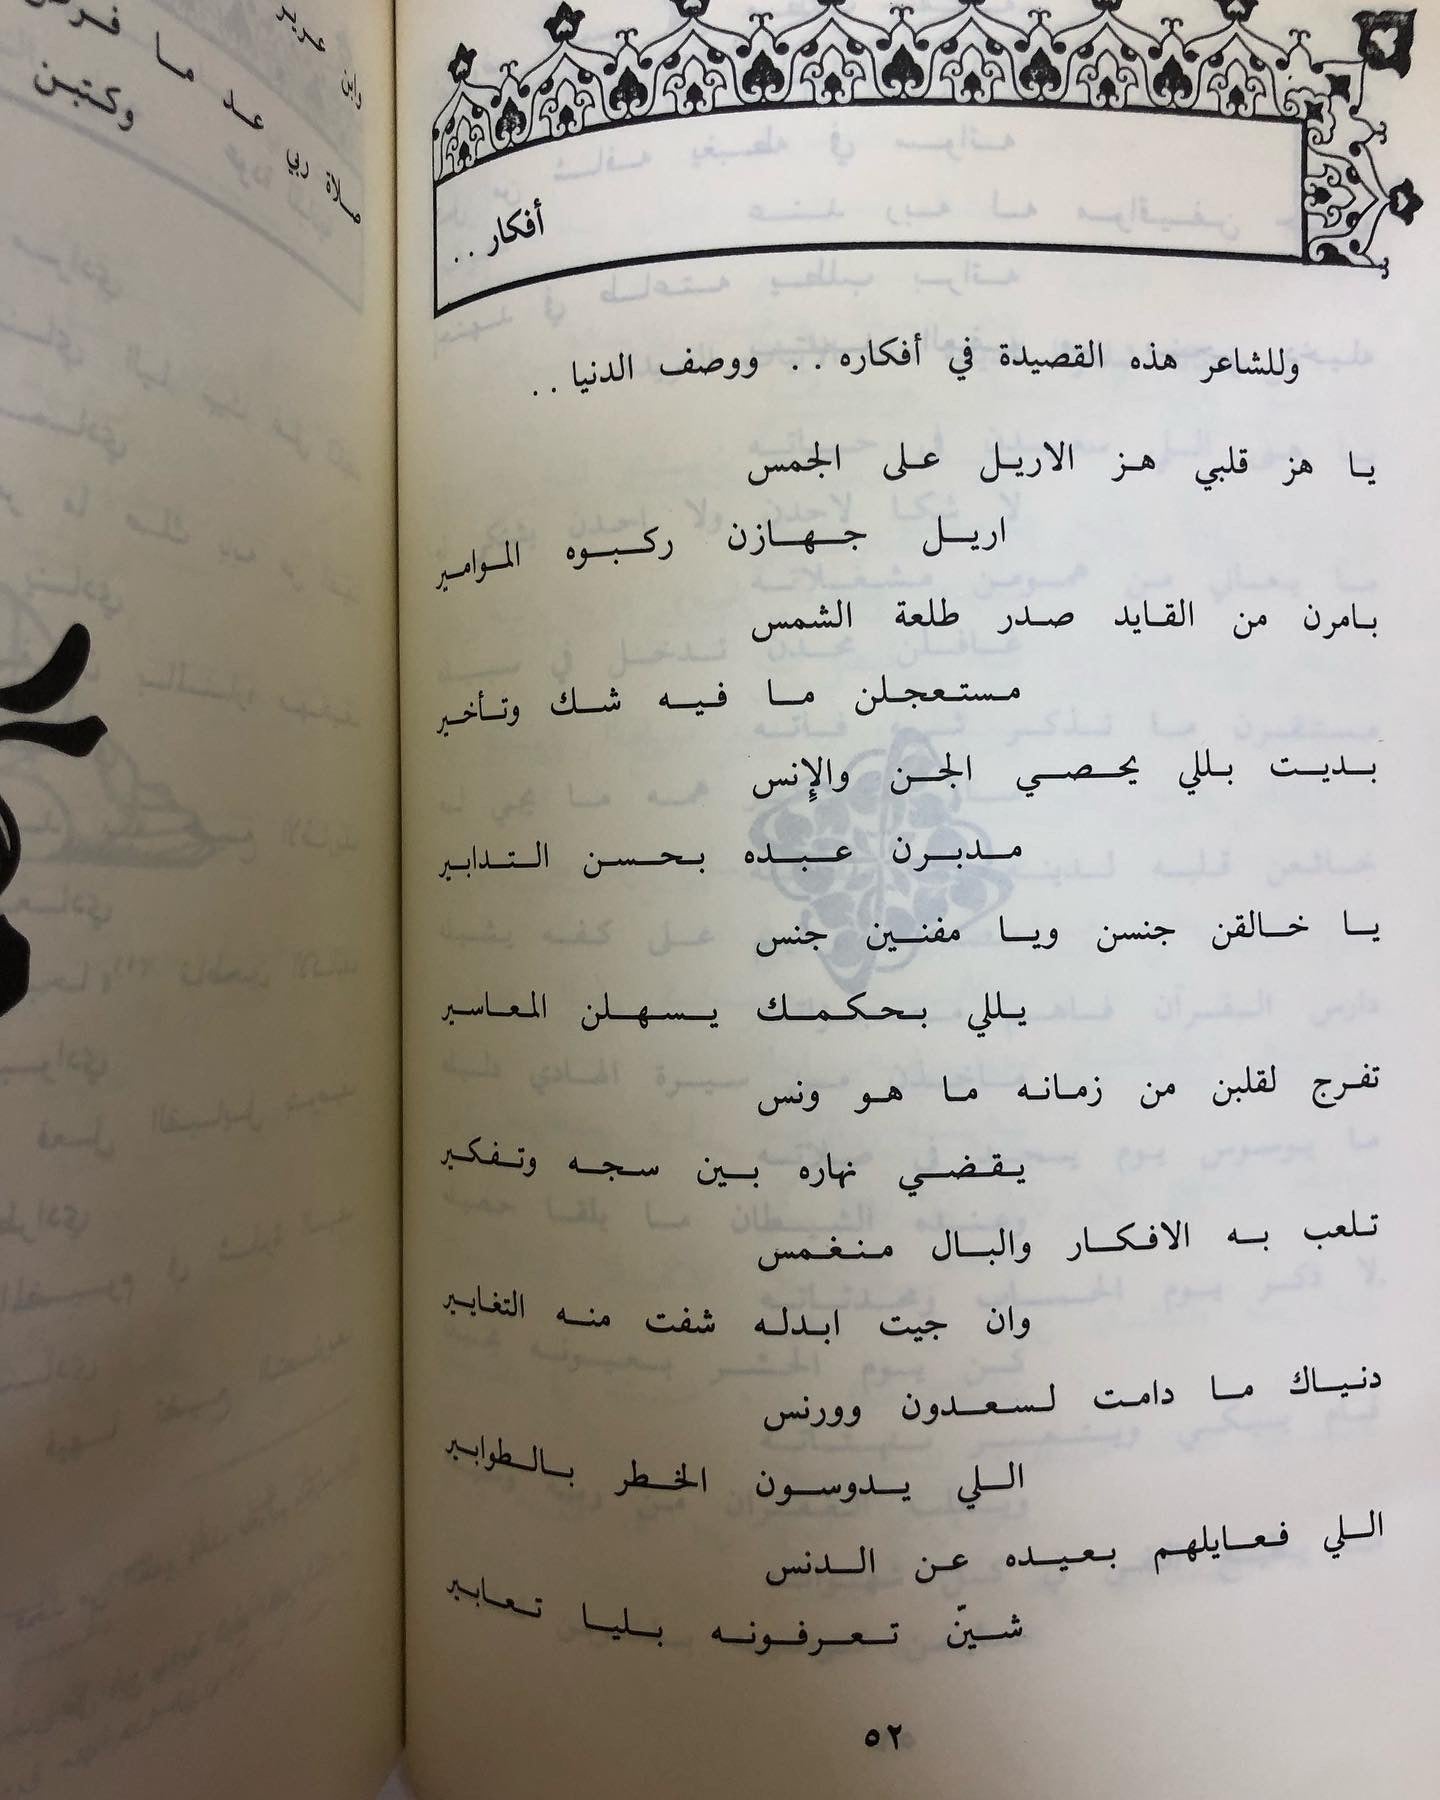 أفكار . .
وللشاعر هذه القصيدة في أفكاره . . ووصف الدنيا . .
يا هز قلبي هز الاريل على الجمس
اريل جهازن ركبوه الموامير
بامرن من القايد صدر طلعة الشمس
مستعجلن ما فيه شك وتأخير
بديت بللي يحصي الجن والإنس
مدبرن عبده بحسن التدابير
يا خالقن جنسن ويا مفنين جنس
يللي بحكمك يسهلن المعاسير
تفرج لقلبن من زمانه ما هو ونس
يقضي نهاره بين سجه وتفكير
تلعب به الافكار والبال منغمس
وان جيت ابدله شفت منه التغايير
دنياك ما دامت لسعدون وورنس
اللي يدوسون الخطر بالطوابير
اللي فعايلهم بعيده عن الدنس
شينّ تعرفونه بليا تعابير
٥٢
وابن
صلاة ربي عد ما
وكتبن